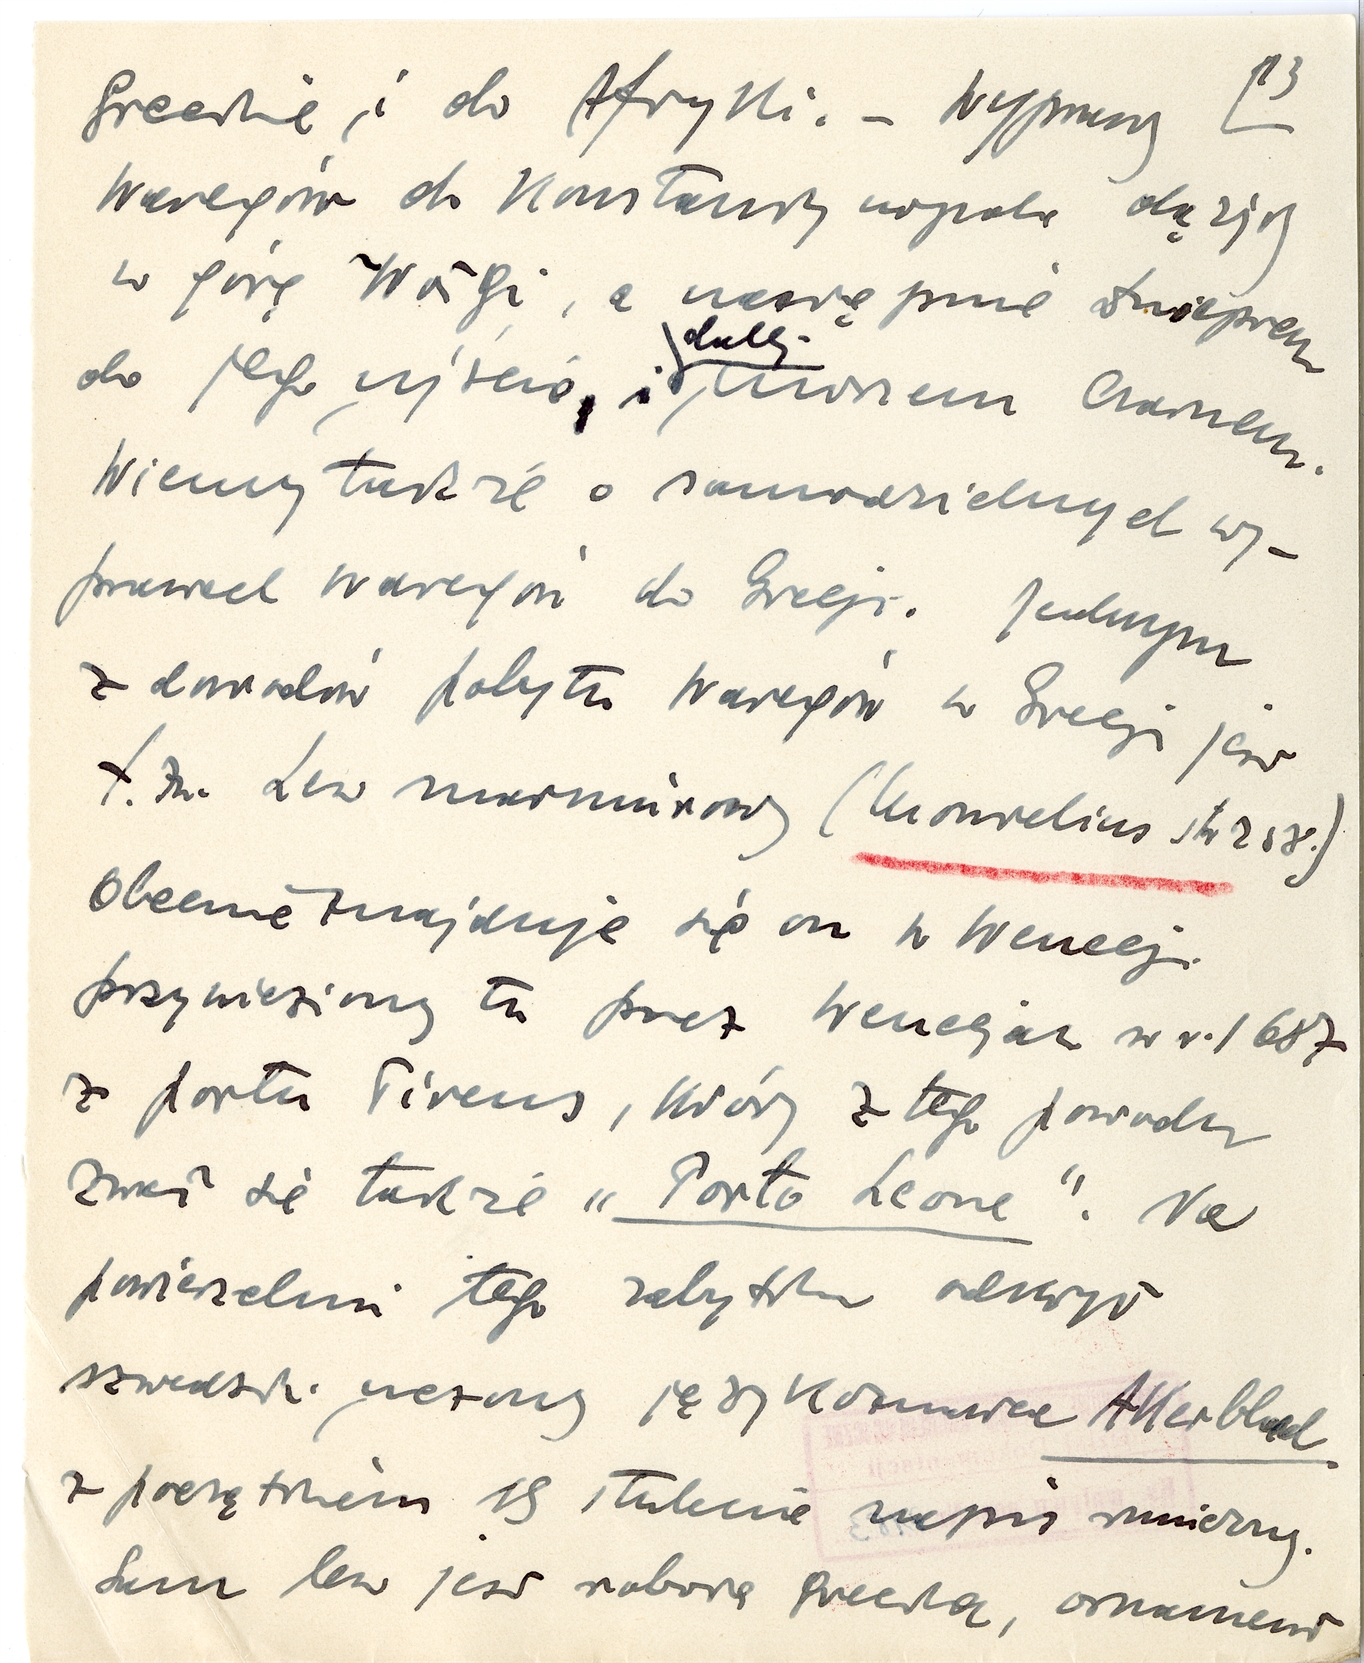 13
Greckie, i do Afryki. – Wyprawy
Waregów do Konstantynopola dążyły
w górę Wołgi, a następnie Dnieprem
do jego ujścia, i dalej morzem Czarnem.
Wiemy także o samodzielnych wy-
prawach Waregów do Grecji. Jednym
z dowodów pobytu Waregów w Grecji jest
t. zw. Lew marmurowy (Montelius str 258.)
Obecnie znajduje się on w Wenecji.
przywieziony tu przez Wenecjan w r. 1687
z portu Pireus, który z tego powodu
zwał się także „Porto Leone". Na
powierzchni tego zabytku odkrył
szwedzki uczony językoznawca Akerblad
z początkiem 19 stulecia napis runiczny.
Sam lew jest robotą grecką, ornament